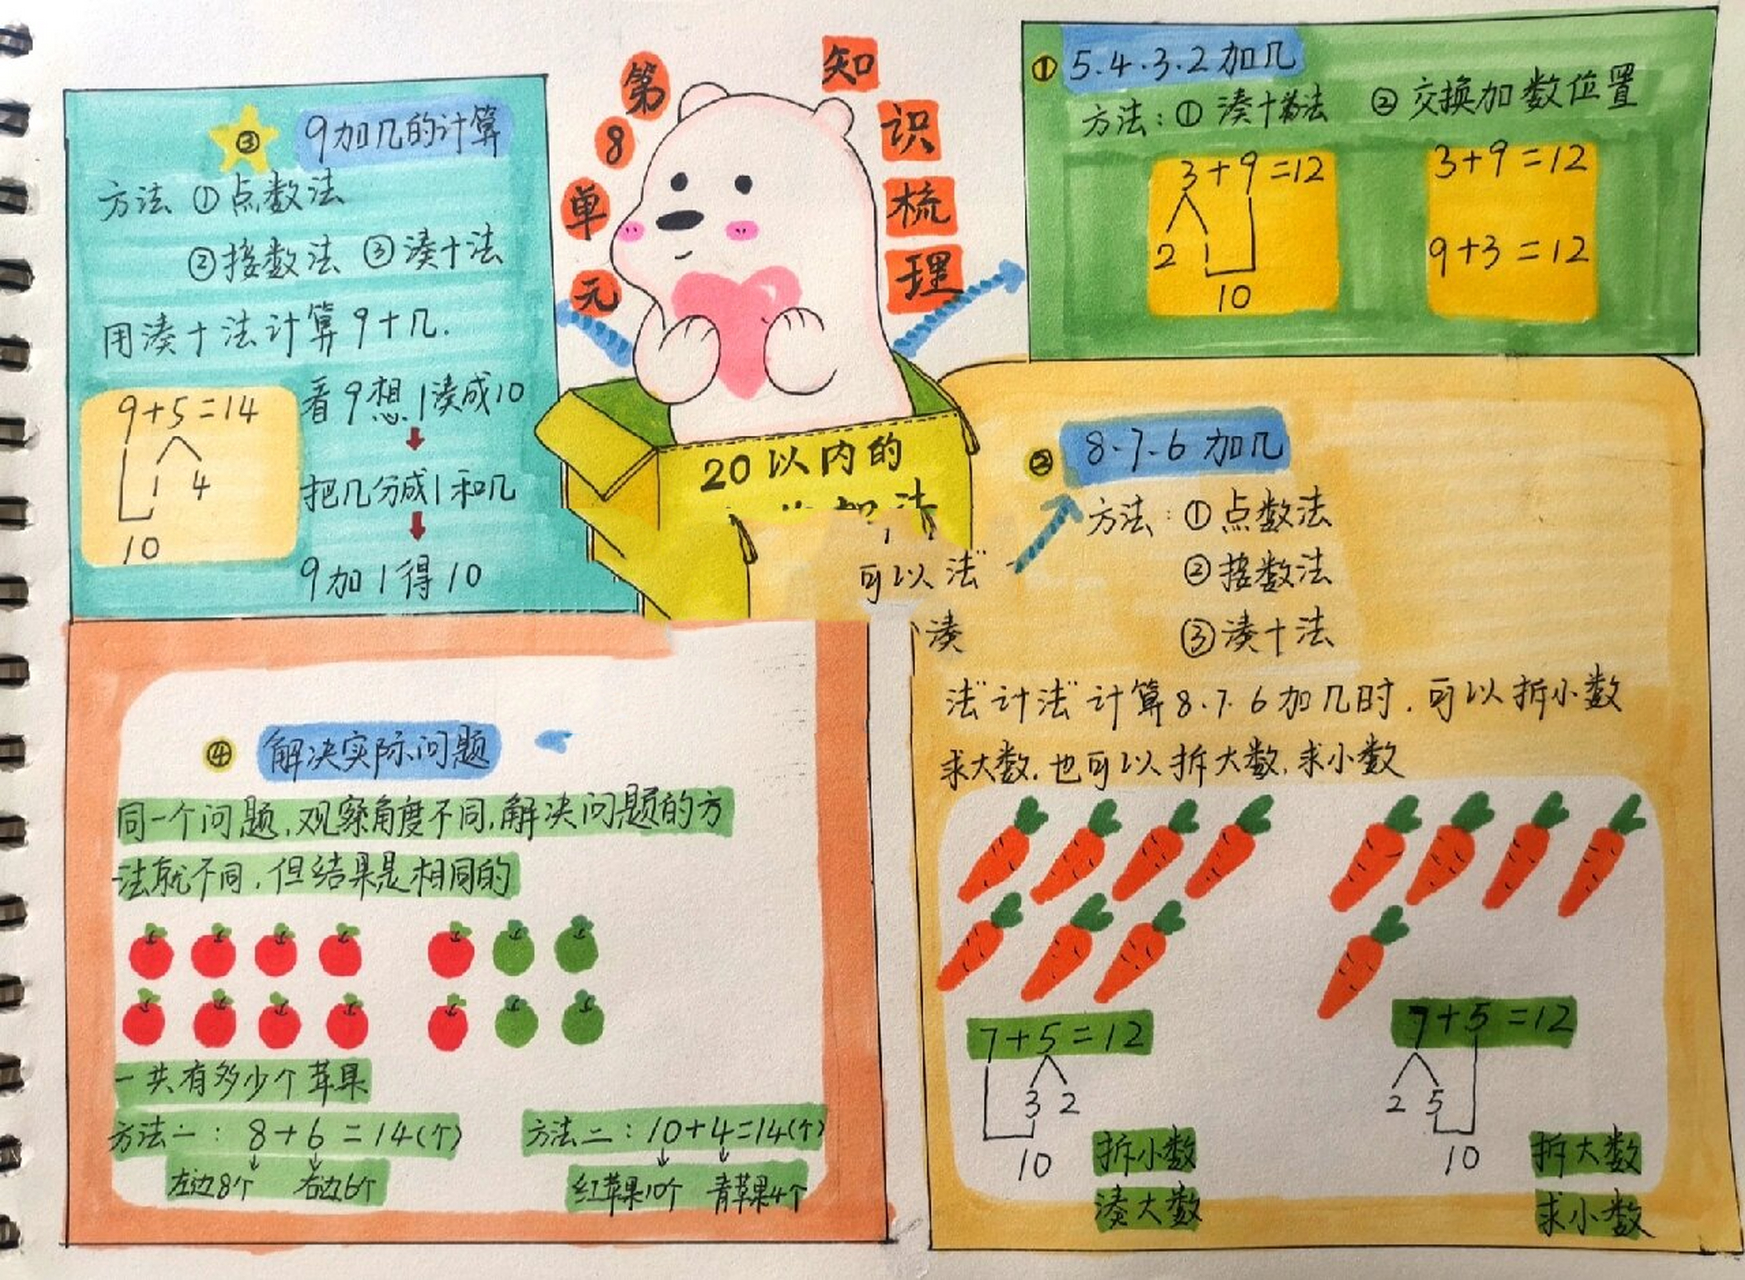 第8单元
知识梳理
20以内的
③ 9加几的计算
方法 ①点数法
②接数法 ③凑十法
用凑十法计算9+几.
9+5=14
1 4
10
看9想1凑成10
把几分成1和几
9加1得10
① 5.4.3.2加几
方法:① 凑十法 ② 交换加数位置
3+9=12
2 1
10
3+9=12
9+3=12
② 8.7.6加几
方法:①点数法
②接数法
③凑十法
可以法"
凑
法"计法"计算8.7.6加几时.可以拆小数
求大数.也可以拆大数.求小数
7+5=12
3 2
10
拆小数
凑大数
7+5=12
2 5
10
拆大数
求小数
④ 解决实际问题
同一个问题,观察角度不同,解决问题的方
法就不同,但结果是相同的
一共有多少个苹果
方法一: 8+6=14(个)
左边8个 右边6个
方法二:10+4=14(个)
红苹果10个 青苹果4个